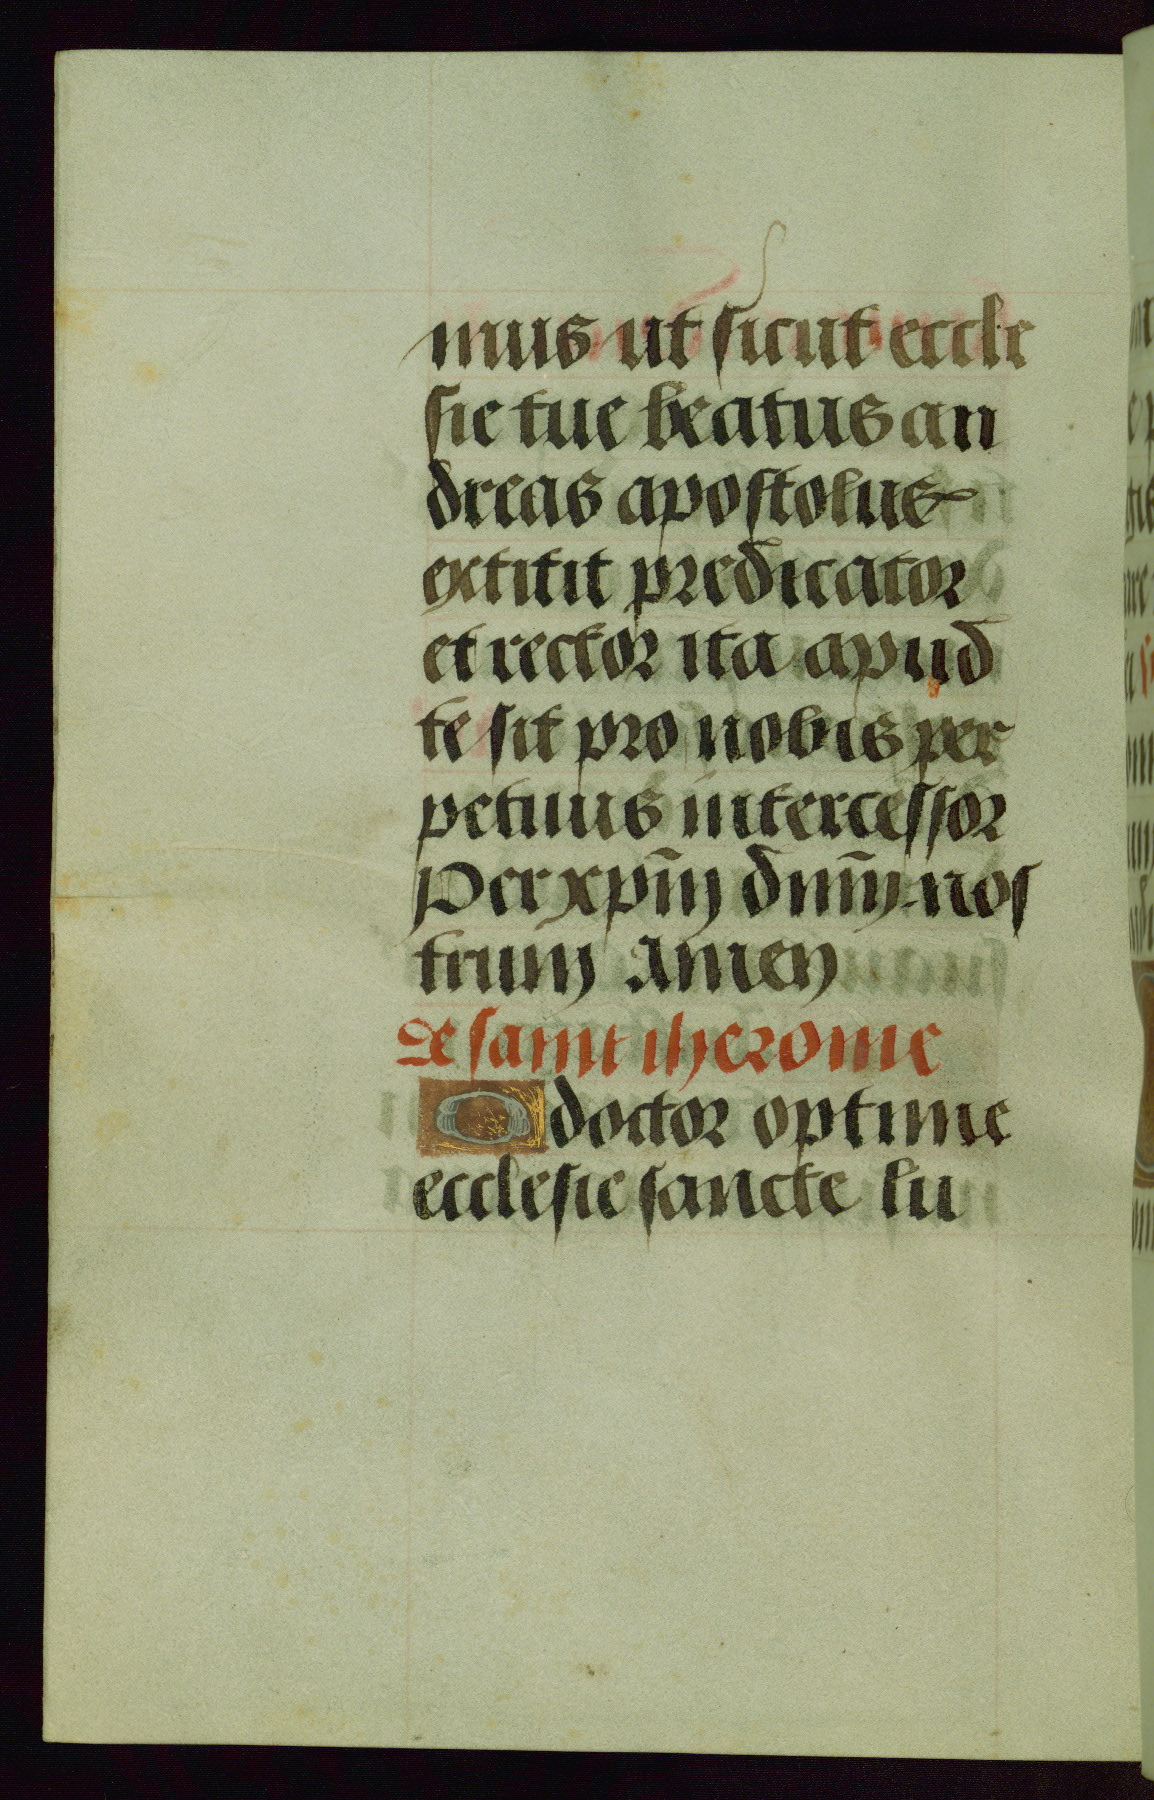 mus ut sicut eccle
sie tue beatus an
dreas apostolus
extitit predicator
et rector ita apud
te sit pro nobis per
petuus intercessor
Per xp̄m dn̄m nos
trum Amen
De saint iherome
O doctor optime
ecclesie sancte lu